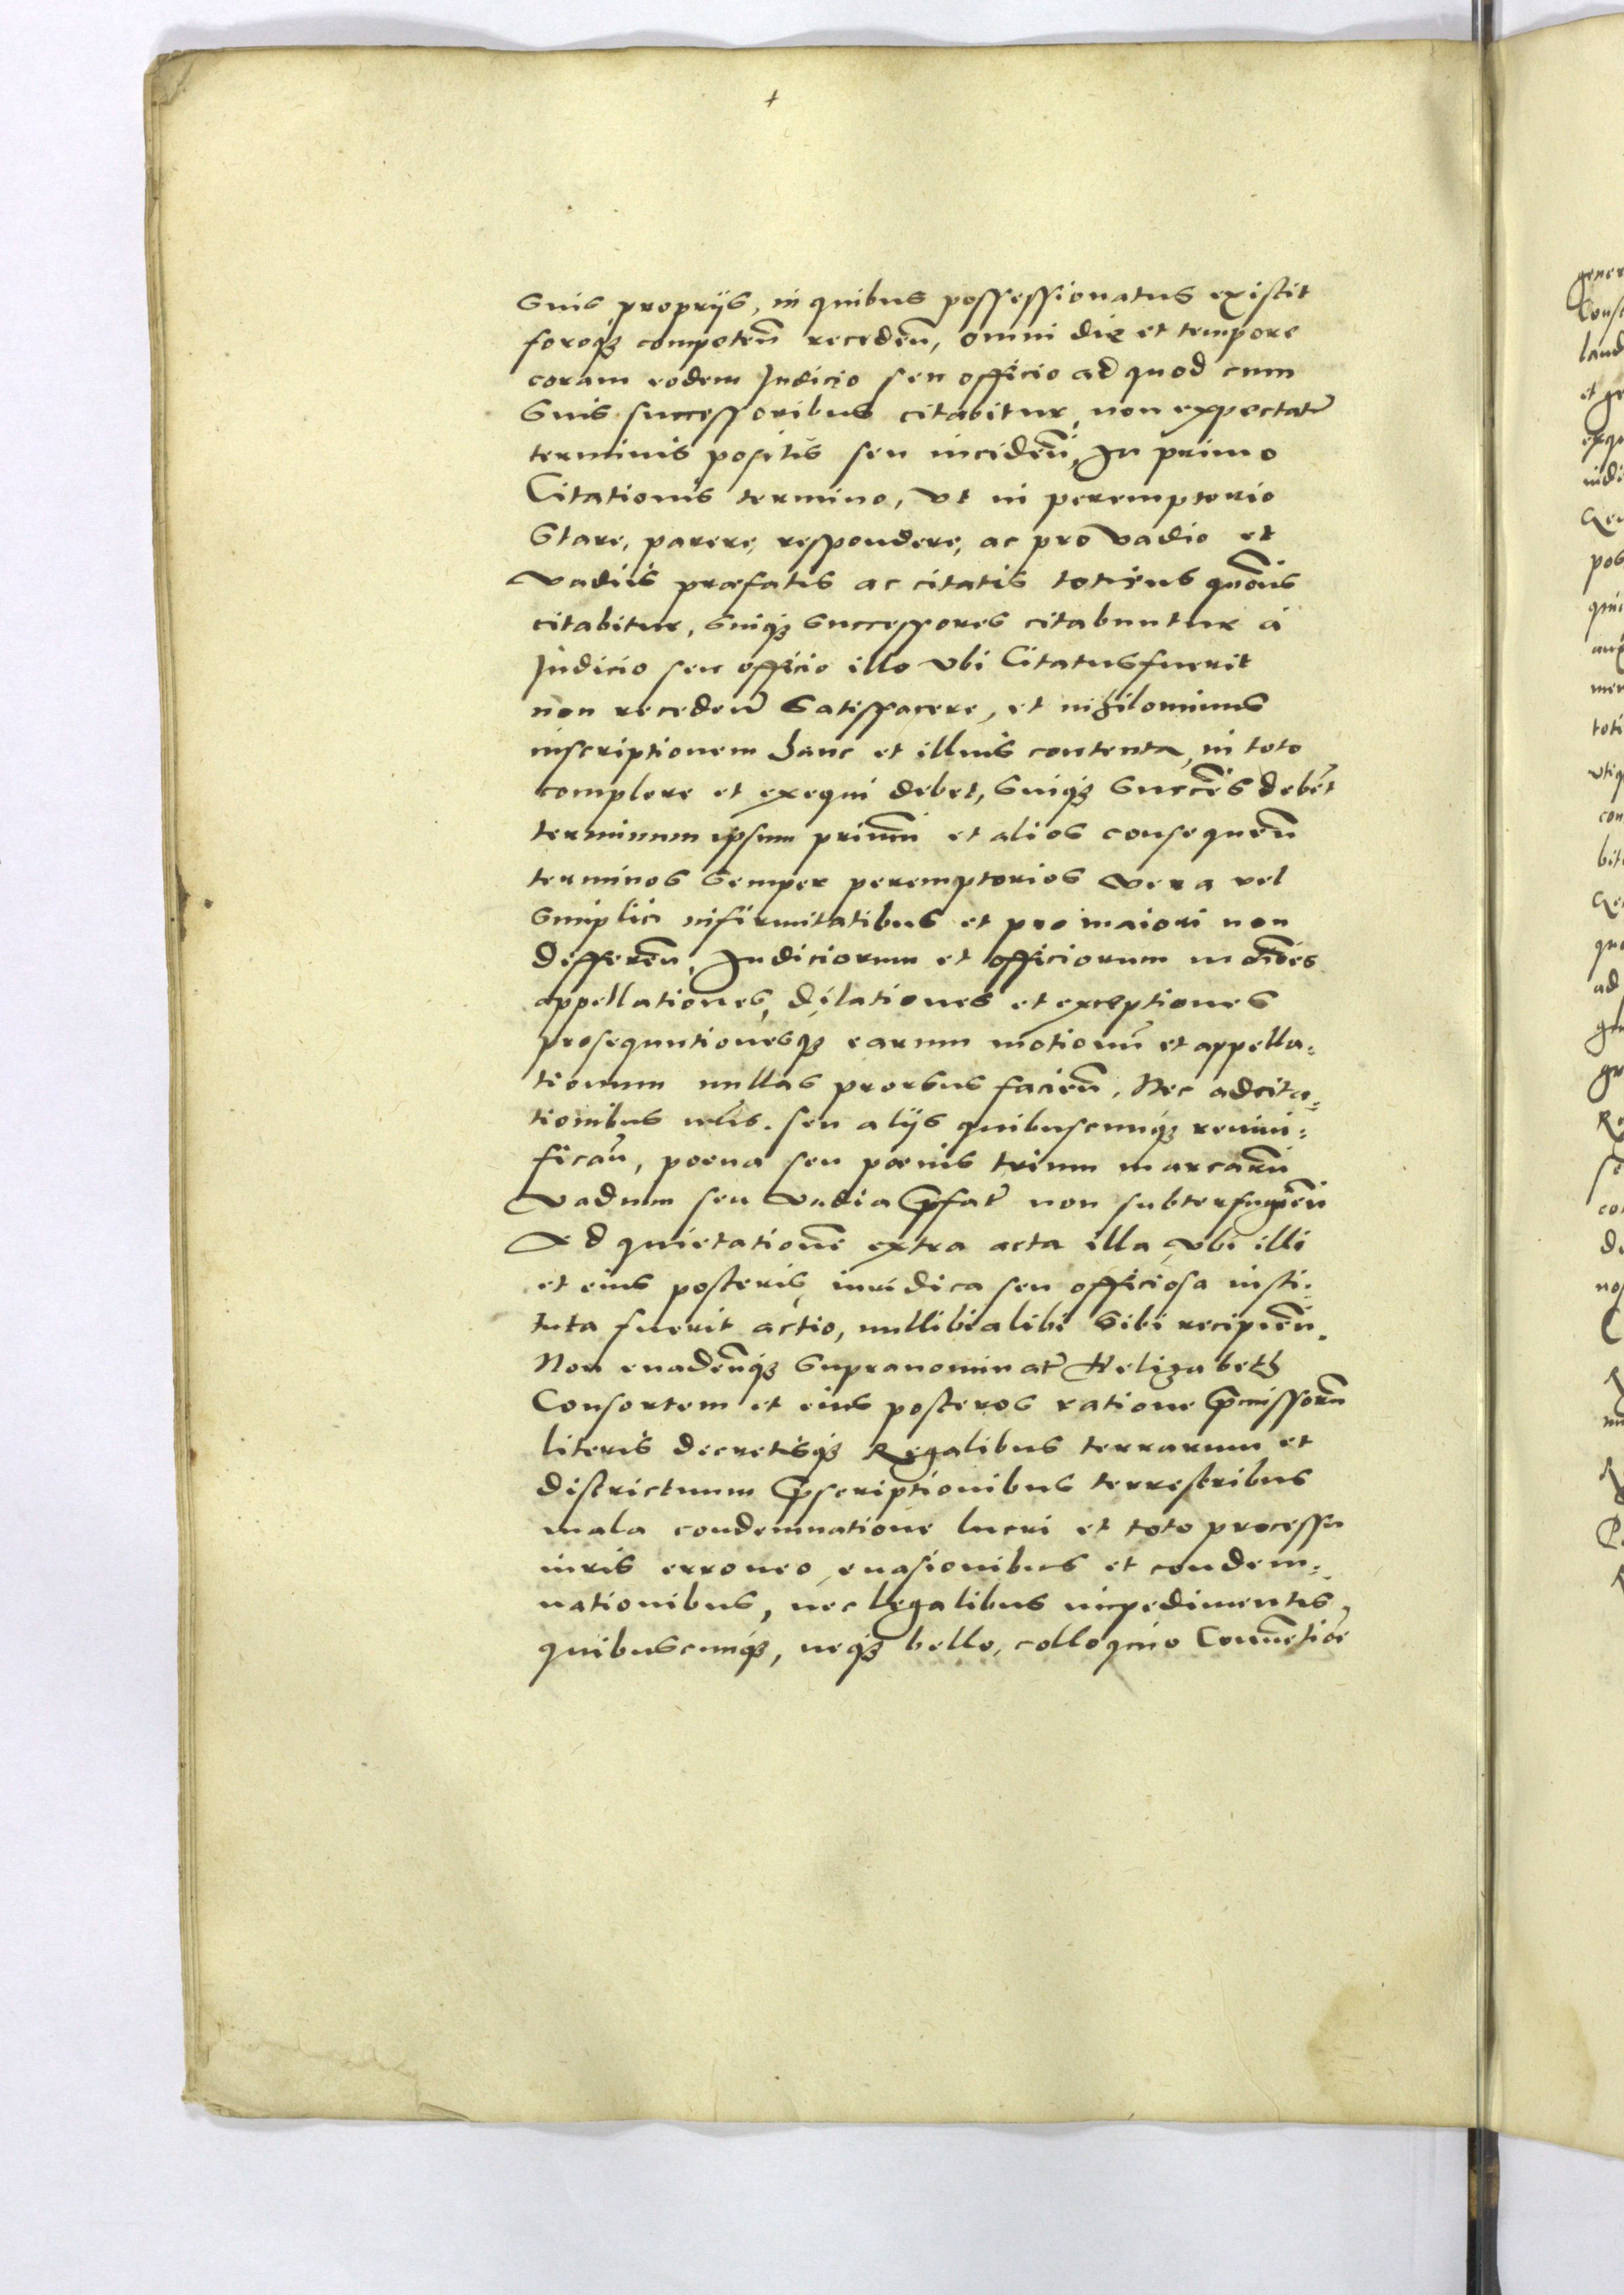 +
suis proprijs, in quibus possessionatus existit
foroq; competeñ recedeñ, omni die et tempore
coram eodem Judicio seu officio ad quod cum
suis successoribus citabitur, non expectat̃
terminis positis seu incideñ, In primo
Citationis termino, vt in peremptorio
stare, parere, respondere, ac pro vadio et
vadiis præfatis ac citatis totiens quōns
citabitur, suiq; successores citabuntur à
Judicio seu officio illo vbi Citatus fuerit
non recedeñ satisfacere, et nihilominus
inscriptionem hanc et illius contenta, in toto
complere et exequi debet, suiq; succēs debēt
terminum ipsum primū et alios consequeñ
terminos semper peremptorios vera vel
simplici infirmitatibus et pro maiori non
differeñ, Judiciorum et officiorum mōtiōēs
appellationes, dilationes et exceptiones
prosequutionesq; earum motionū et appella=
tionum nullas prorsus facieñ. Nec adcita=
tionibus ul̃is. seu alijs quibuscunq; reuiui=
ficañ, poena seu poenis trium marcarū
vadum seu vadia p̄fat̃ non subterfugieñ
Ad quietationē extra acta illa vbi illi
et eius posteris, iuridica seu officiosa insti=
tuta fuerit actio, nullibi alibi sibi recipieñ.
Non euadeñq; supranominat̃ Helizabeth
Consortem et eius posteros ratione p̄missorū
literis decretisq; Regalibus terrarum et
districtuum p̄scriptionibus terrestribus
mala condemnatione lucri et toto processu
iuris erroneo, euasionibus et condem=
nationibus, nec legalibus impedimentis,
quibuscunq;, neq; bello, colloquio Conuētiōē